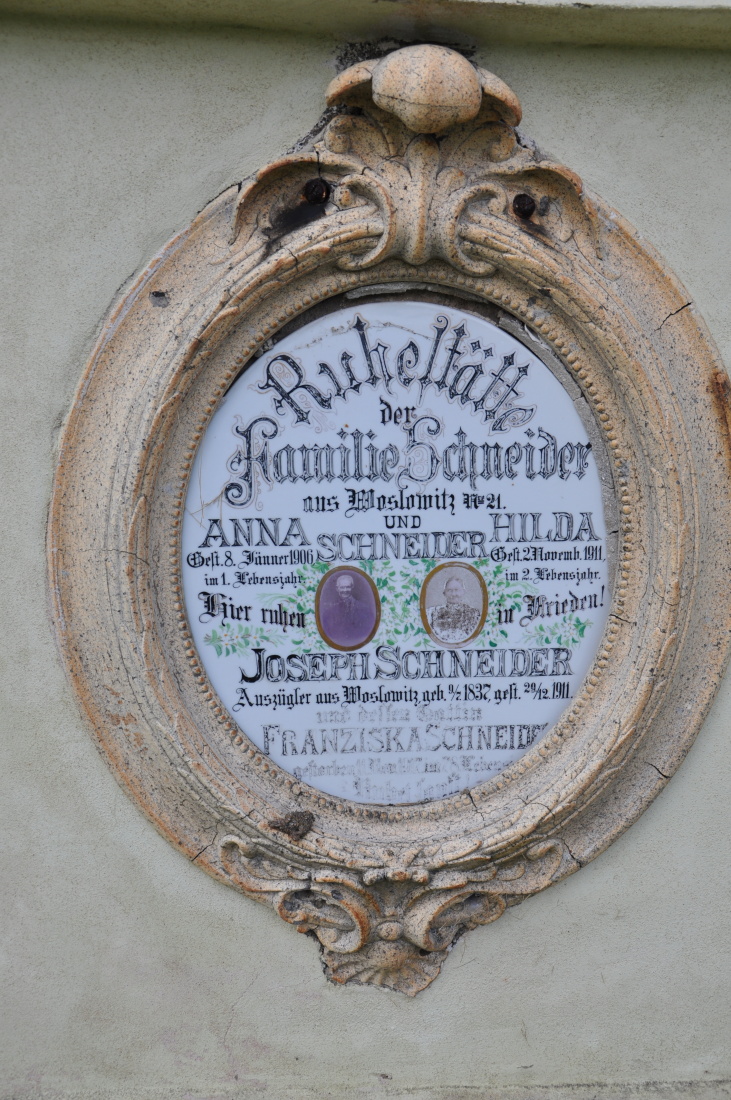 Ruhestätte
der
Familie Schneider
aus Woslowitz No 21.
ANNA UND HILDA
SCHNEIDER
Gest. 8. Jänner 1906 Gest. 2 Novemb. 1911.
im 1. Lebensjahr. im 2. Lebensjahr.
Hier ruhen in Frieden!
JOSEPH SCHNEIDER
Auszügler aus Woslowitz geb. 9/2 1837, gest. 29/12. 1911.
und dessen Gattin
FRANZISKA SCHNEIDER
gestorben im Lebens